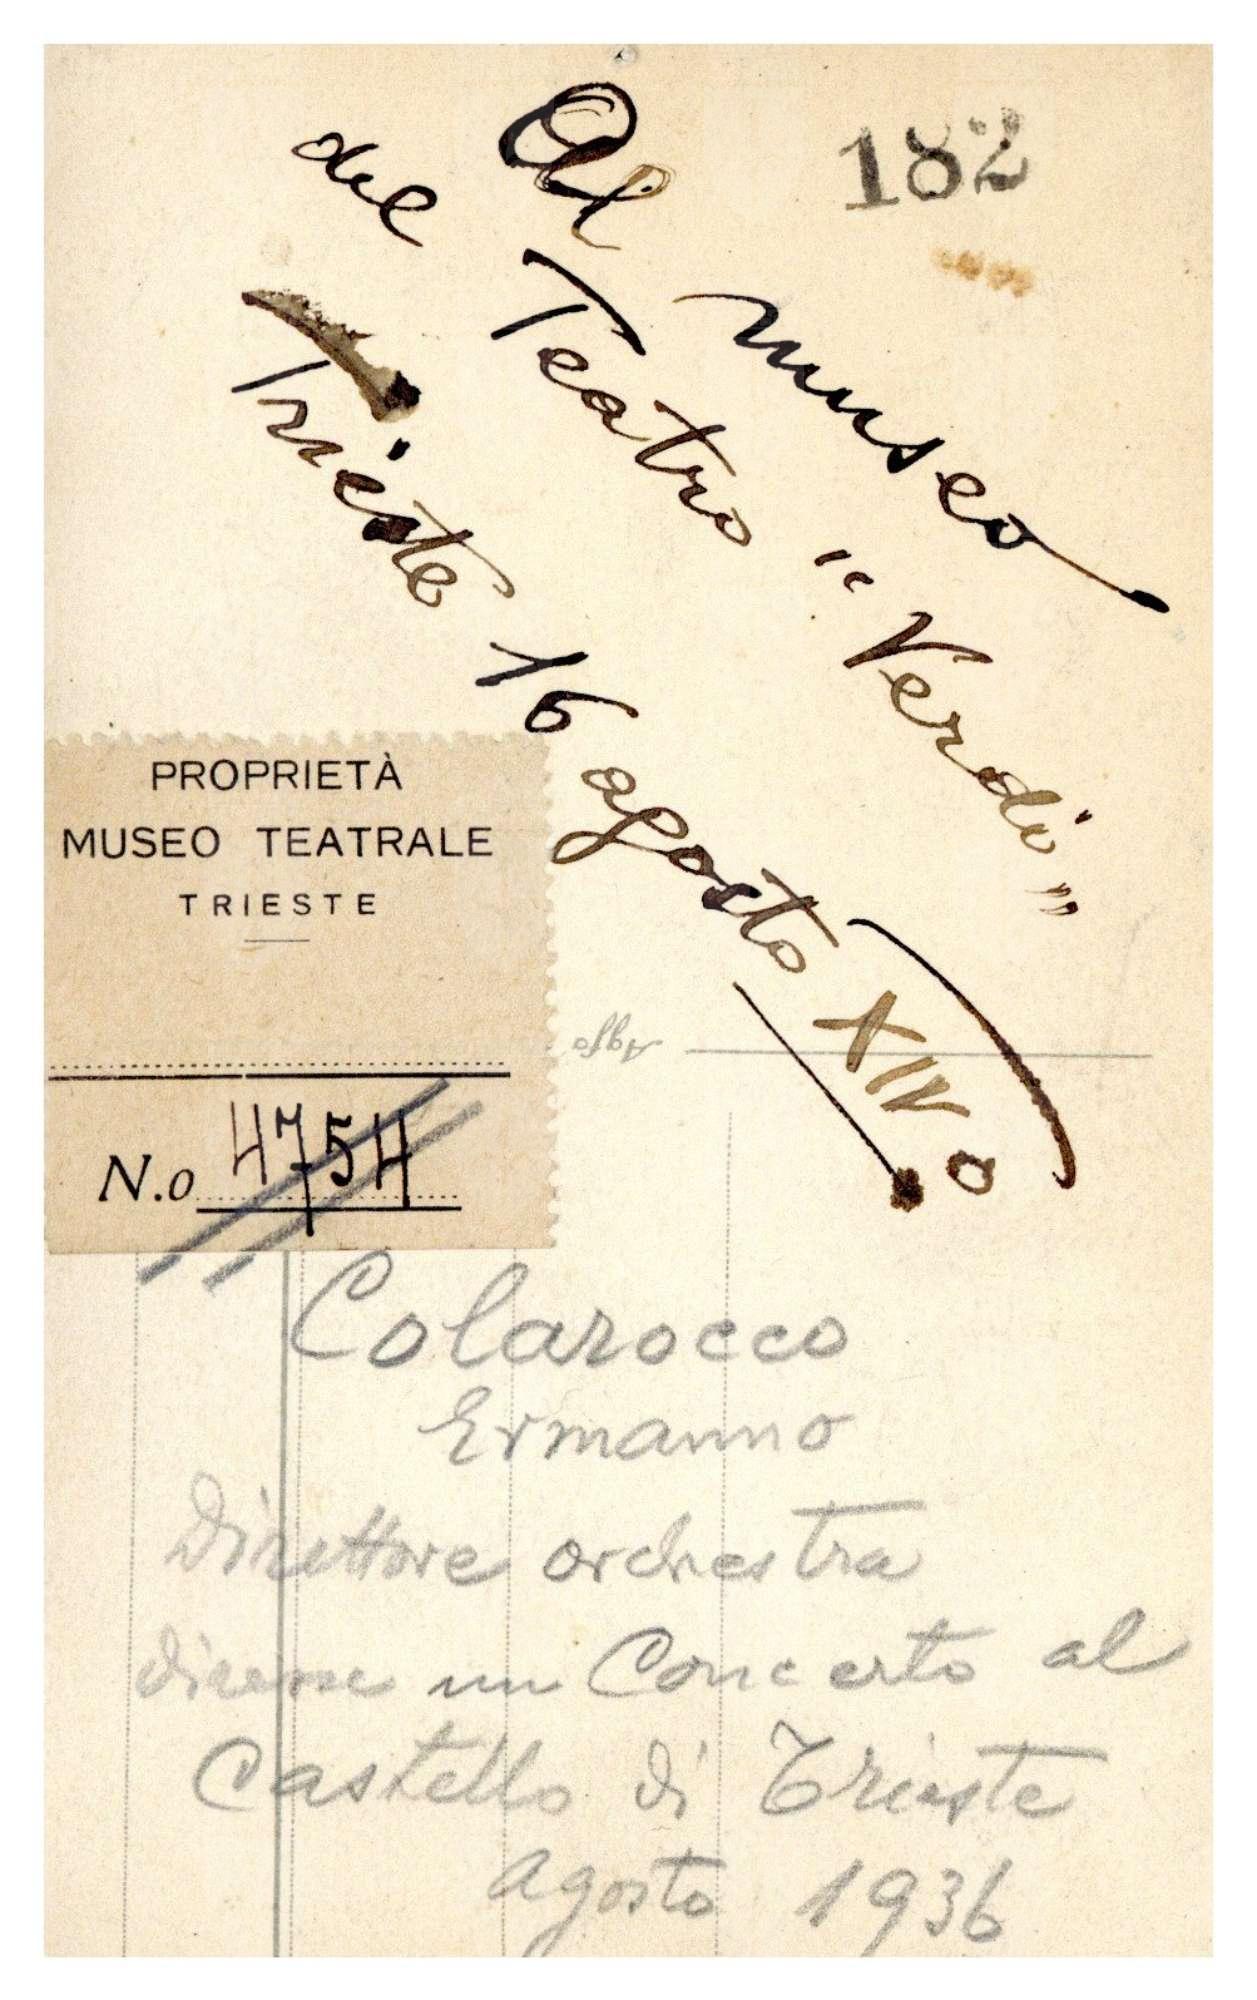 182
Al museo
del Teatro "Verdi"
Trieste 16 agosto XIV o
PROPRIETÀ
MUSEO TEATRALE
TRIESTE
N.o 4754
Agfa
Colarocco
Ermanno
Direttore orchestra
diresse un Concerto al
Castello di Trieste
agosto 1936